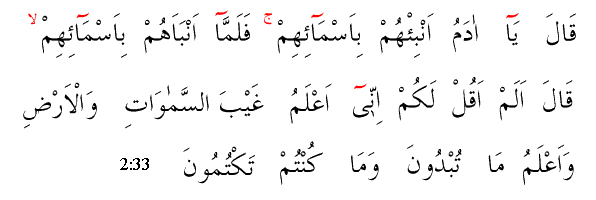 قَالَ يَٓا اٰدَمُ اَنْبِئْهُمْ بِاَسْمَٓائِهِمْۚ فَلَمَّٓا اَنْبَاَهُمْ بِاَسْمَٓائِهِمْۙ
قَالَ اَلَمْ اَقُلْ لَكُمْ اِنّ۪ٓي اَعْلَمُ غَيْبَ السَّمٰوَاتِ وَالْاَرْضِ
وَاَعْلَمُ مَا تُبْدُونَ وَمَا كُنْتُمْ تَكْتُمُونَ 2:33